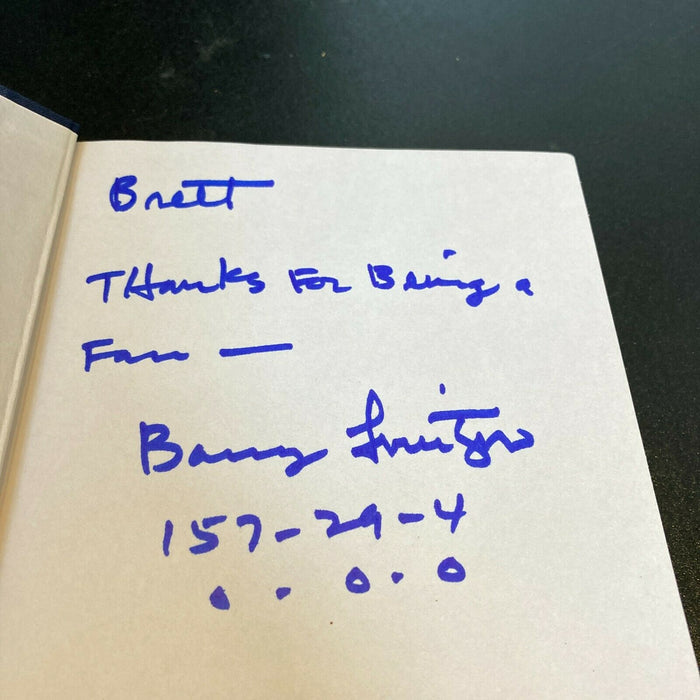 Brett
Thanks For Being a
Fan —
Barry Switzer
157-29-4
. . o . o